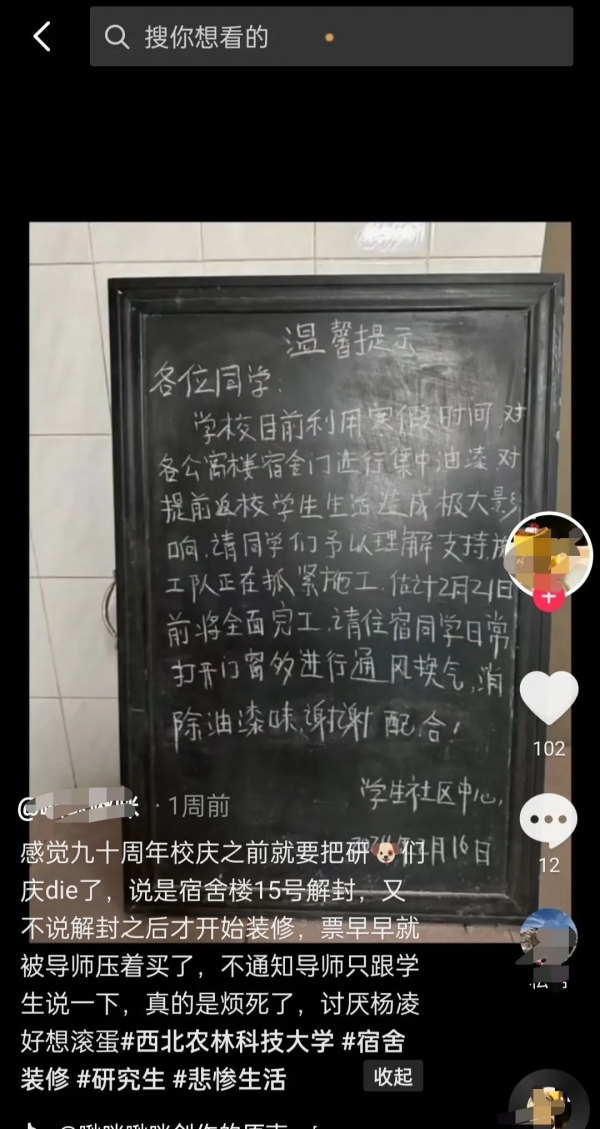 搜你想看的
温馨提示
各位同学:
学校目前利用寒假时间,对
各公寓楼宿舍门进行集中油漆,对
提前返校学生生活造成极大影
响,请同学们予以理解支持,施
工队正在抓紧施工,估计2月21日
前将全面完工,请住宿同学日常
打开门窗多进行通风换气,消
除油漆味,谢谢配合!
学生社区中心,
月16日
102
12
· 1周前
感觉九十周年校庆之前就要把研🐶们
庆die了，说是宿舍楼15号解封，又
不说解封之后才开始装修，票早早就
被导师压着买了，不通知导师只跟学
生说一下，真的是烦死了，讨厌杨凌
好想滚蛋#西北农林科技大学 #宿舍
装修 #研究生 #悲惨生活
收起